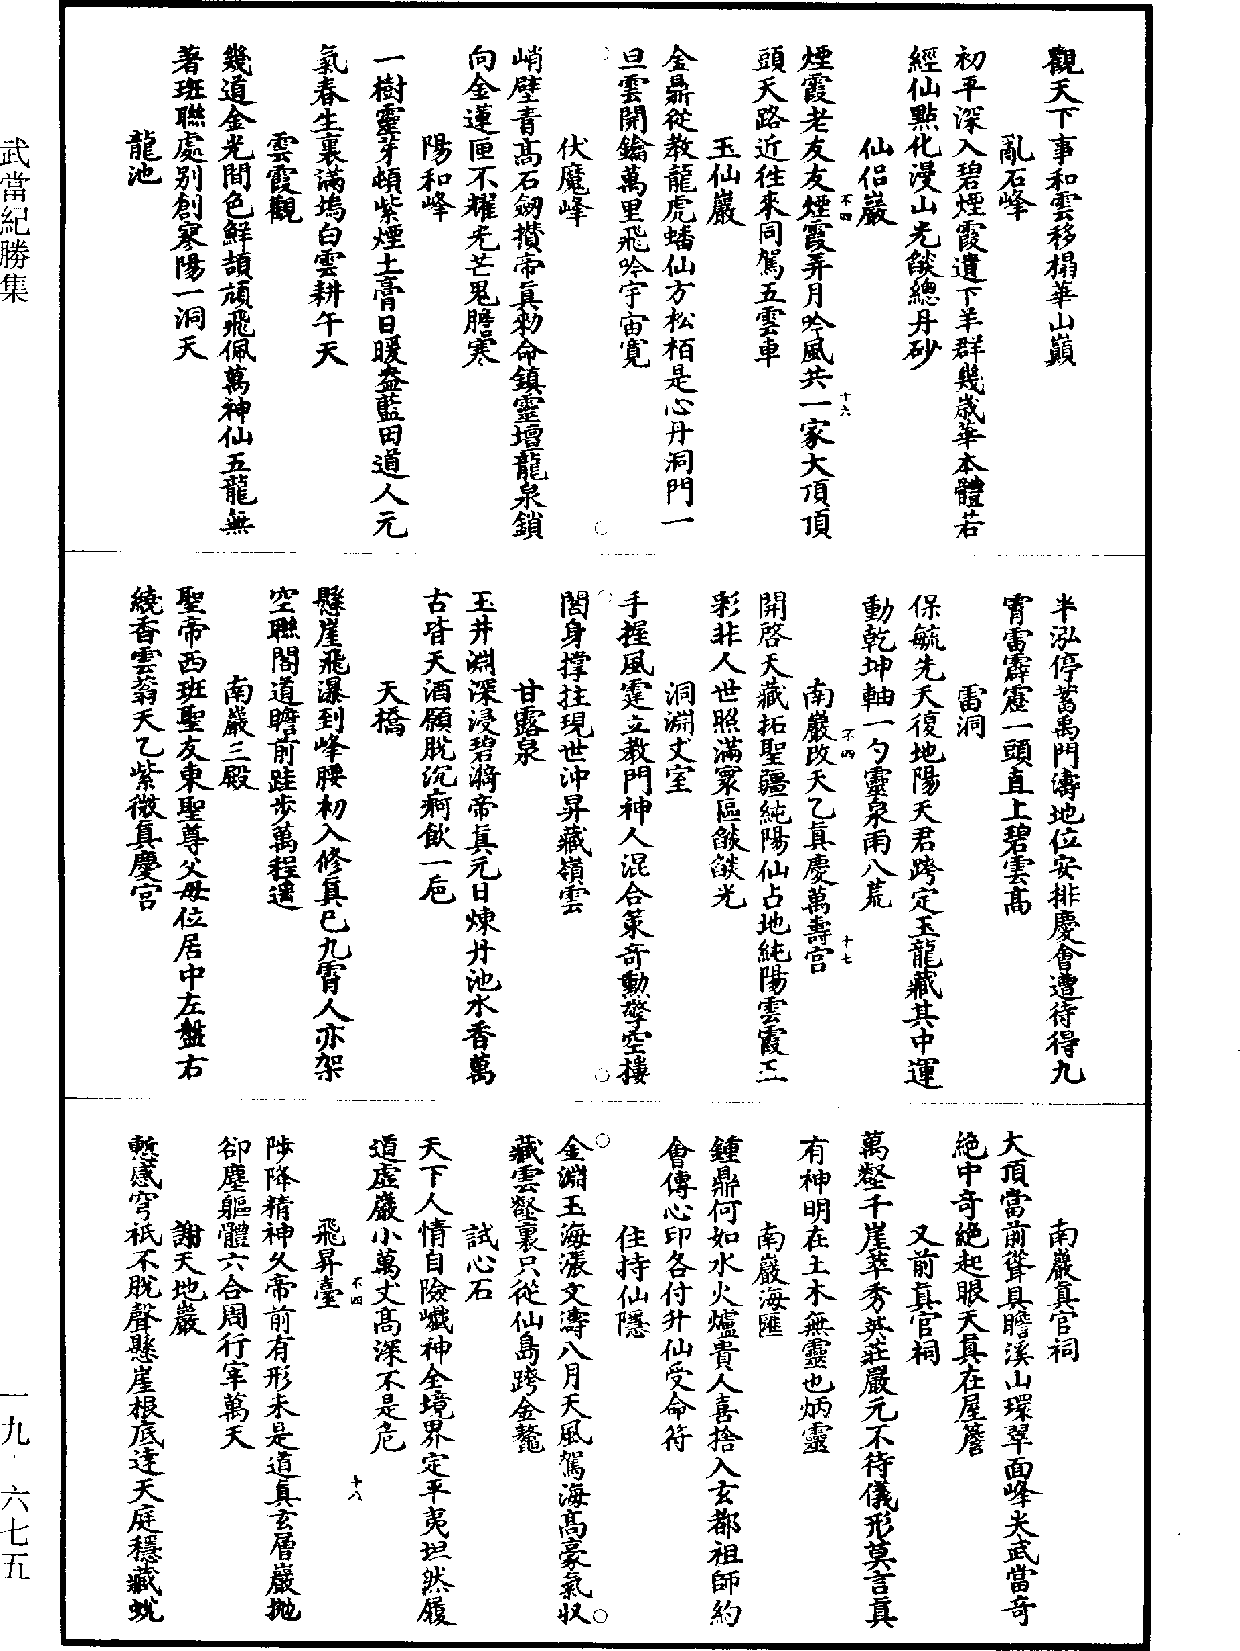 觀天下事和雲移榻華山巔
亂石峰
初平深入碧煙霞遺下羊群幾歲華本體若
經仙點化漫山光燄總丹砂
仙侶巖
不四
煙霞老友友煙霞弄月吟風共一家大頂頂
十六
頭天路近徃來同駕五雲車
玉仙巖
金鼎從教龍虎蟠仙方松栢是心丹洞門一
旦雲開鑰萬里飛吟宇宙寬
伏魔峰
峭壁青高石劒攢帝真勑命鎮靈壇龍泉鎖
向金蓮匣不耀光芒鬼膽寒
陽和峰
一樹靈芽頓紫煙土膏日暖盎藍田道人元
氣春生裏滿塢白雲耕午天
雲霞觀
幾道金光間色鮮頡頏飛佩萬神仙五龍無
著班聯處別創寒陽一洞天
龍池
半泓停蓄禹門濤地位安排慶會遭待得九
霄雷霹靂一頭直上碧雲高
雷洞
保毓先天復地陽天君跨定玉龍藏其中運
動乾坤軸一勺靈泉雨八荒
不四
南巖改天乙真慶萬壽宮
十七
開啓天藏拓聖疆純陽仙占地純陽雲霞三
彩非人世照滿寰區燄燄光
洞淵丈室
手握風霆立教門神人混合策奇勲擎空摟
閣身撑拄現世沖昇藏嶺雲
甘露泉
玉井淵深浸碧漪帝真元日煉丹池水香萬
古皆天酒願脫沉痾飲一巵
天橋
懸崖飛瀑到峰腰初入修真已九霄人亦架
空聯閣道瞻前跬步萬程遥
南巖三殿
聖帝西班聖友東聖尊父母位居中左盤右
繞香雲蓊天乙紫微真慶宮
南巖真官祠
大頂當前聳具瞻溪山環翠面峰尖武當奇
絕中奇絕起眼天真在屋簷
又前真官祠
萬壑千崖萃秀英莊嚴元不待儀形莫言真
有神明在土木無靈也炳靈
南巖海匯
鍾鼎何如水火爐貴人喜捨入玄都祖師約
會傳心印各付升仙受命符
住持仙隱
金淵玉海漲文濤八月天風駕海高豪氣収
藏雲壑裏只從仙島跨金鼇
試心石
天下人情自險巇神全境界定平夷坦然履
道虛巖小萬丈高深不是危
飛昇臺
不四
十八
陟降精神久帝前有形未是道真玄層巖拋
卻塵軀體六合周行宰萬天
謝天地巖
慙感穹祇不脫聲懸崖根底達天庭穩藏蛻
武當紀勝集
一九·六七五